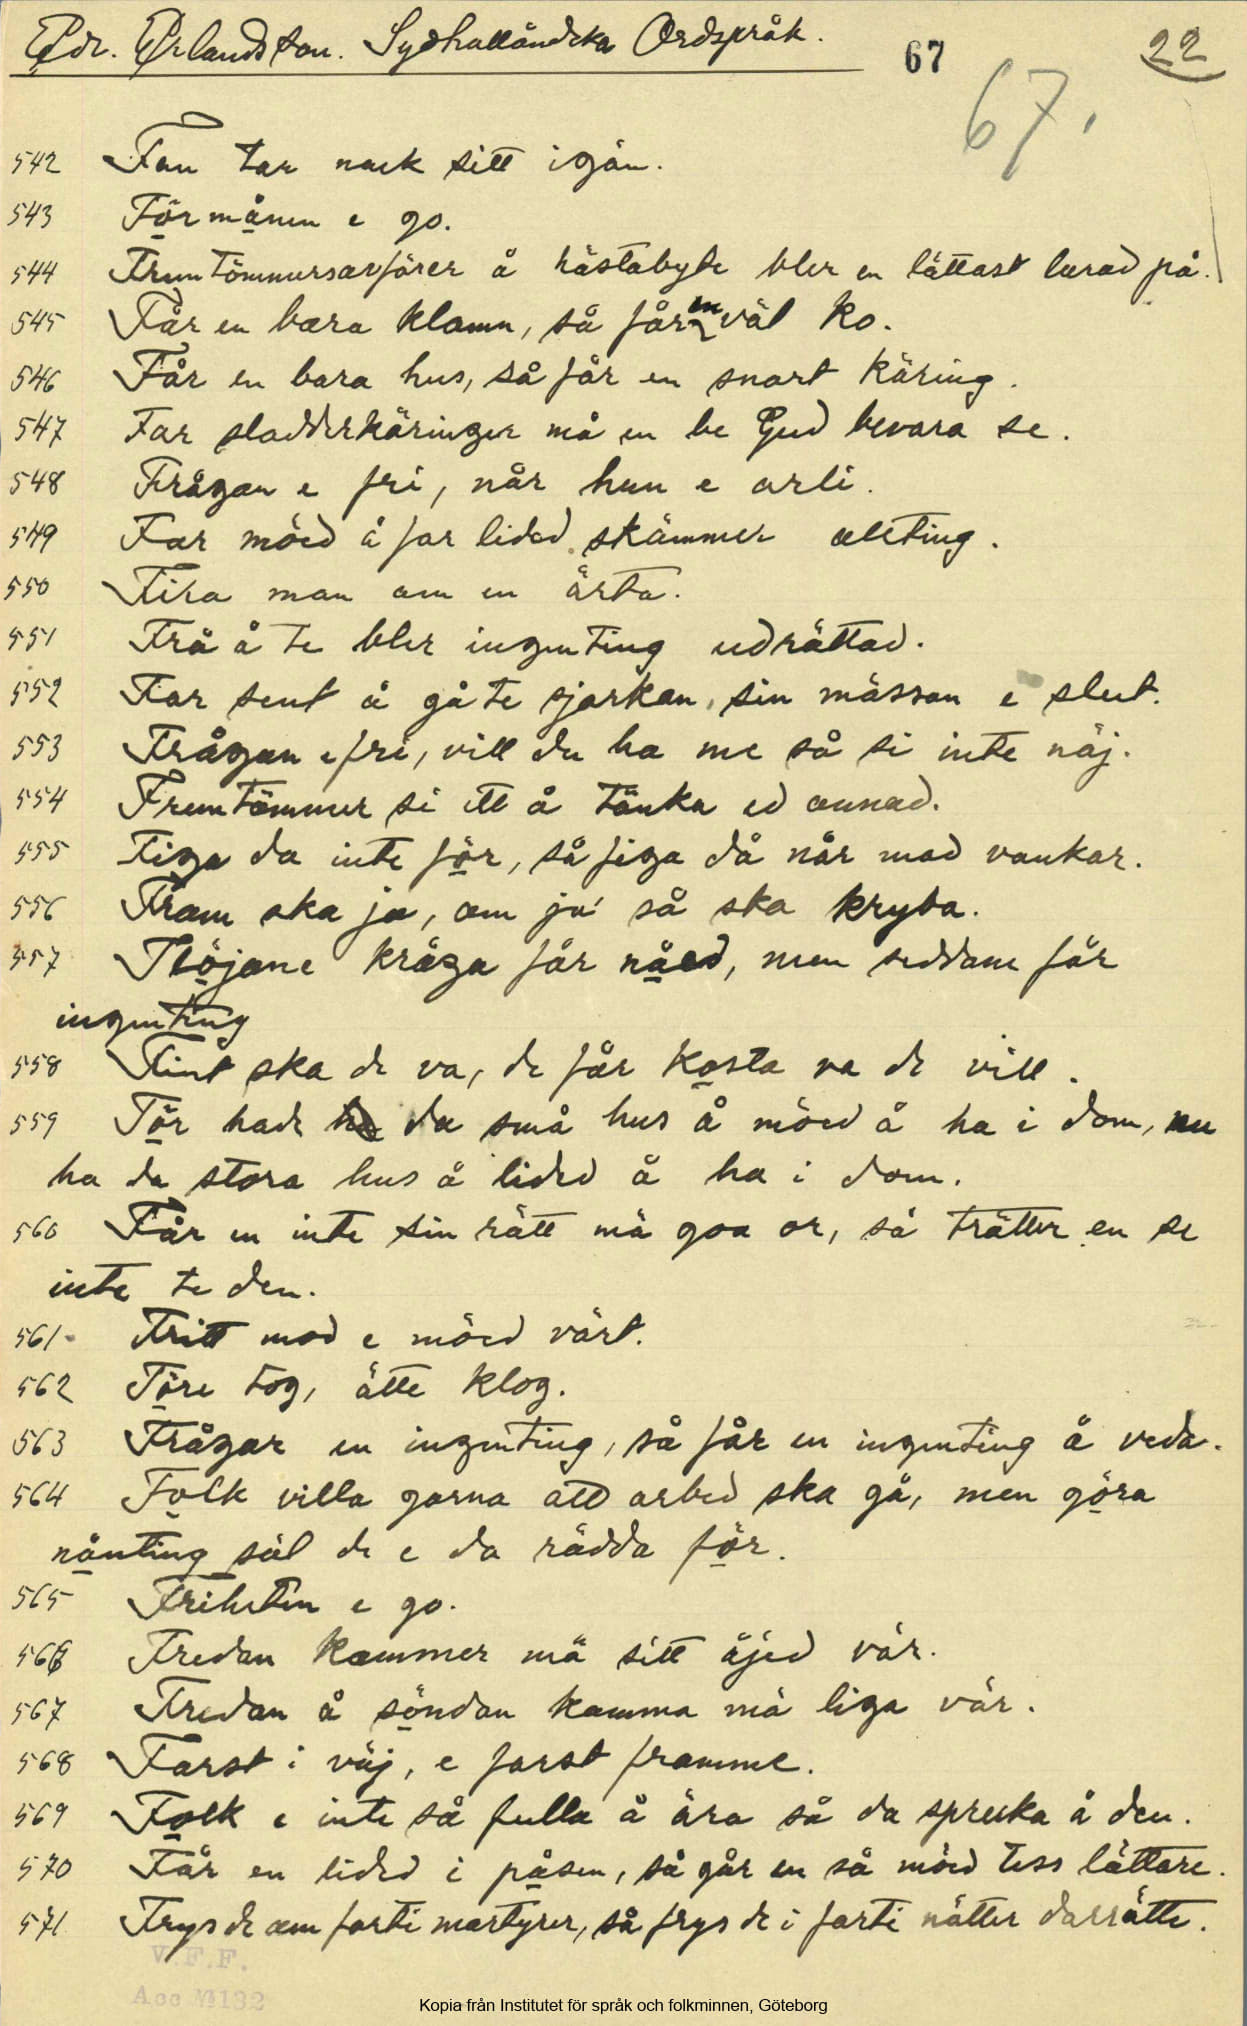 Edv. Erlandsson. Sydhalländska Ordspråk.
67
22
67.
542 Fan tar nack sitt igän.
543 Förmånen e go.
544 Frumtömmursaffärer å hästabyte bler en lättast lurad på.
545 Får en bara klamn, så får en väl ko.
546 Får en bara hus, så får en snart käring.
547 Far sladderkäringer må en be Gud bevara se.
548 Frågan e fri, når hun e arli.
549 Far möed å far lided skämmer alleting.
550 Fira man om en ärta.
551 Frå å te bler ingenting udrättad.
552 Far sent å gå te sjarkan, sin mässan e slut.
553 Frågan e fri, vill du ha me så si inte näj.
554 Fremtömmer si ett å tänka ed annad.
555 Figa da inte för, så figa då når mad vankar.
556 Fram ska ja, om ja så ska kryba.
557 Flöjane kråga får nåed, men siddane får
ingenting
558 Fint ska de va, de får kosta va de vill.
559 För hade da små hus å möed å ha i dom, nu
ha da stora hus å lided å ha i dom.
560 Får en inte sin rätt mä goa or, så trätter en se
inte te den.
561 Fritt mod e möed värt.
562 Före tog, ätte klog.
563 Frågar en ingenting, så får en ingenting å veda.
564 Folk villa garna att arbed ska gå, men göra
nånting säl de e da rädda för.
565 Friheten e go.
566 Fredan kommer mä sitt äjed vär.
567 Fredan å söndan kamma mä liga vär.
568 Farst i väj, e farst framme.
569 Folk e inte så fulla å ära så da spreka å den.
570 Får en lided i påsen, så går en så möed tess lättare.
571 Frys de om farti martyrer, så frys de i farti nätter darrätte.
V.F.F.
Acc № 132
Kopia från Institutet för språk och folkminnen, Göteborg